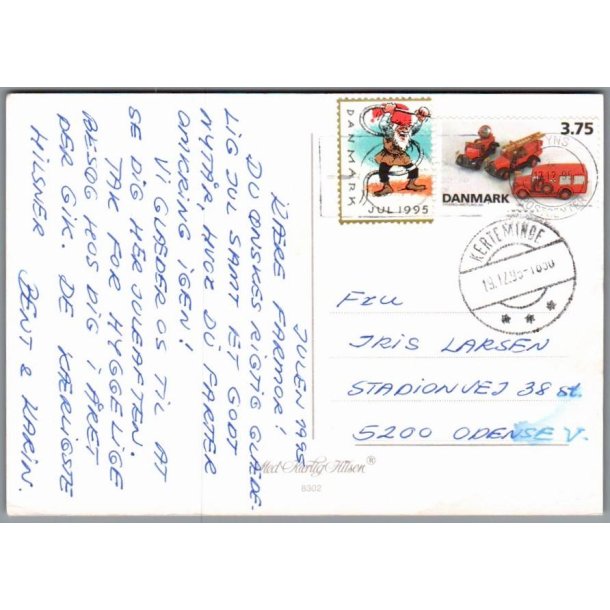 JULEN 1995
KÆRE FARMOR!
DU ØNSKES RIGTIG GLÆDE-
LIG JUL SAMT ET GODT
NYTÅR HVOR DU FARTER
OMKRING IGEN!
VI GLÆDER OS TIL AT
SE DIG HER JULEAFTEN.
TAK FOR HYGGELIGE
BESØG HOS DIG I ÅRET
DER GIK. DE KÆRLIGSTE
HILSNER
BENT & KARIN.
DANMARK
JUL 1995
3.75
DANMARK
KERTEMINDE
19.12.95-1830
Fru
IRIS LARSEN
STADIONVEJ 38 st.
5200 ODENSE V.
Med Kærlig Hilsen®
8302